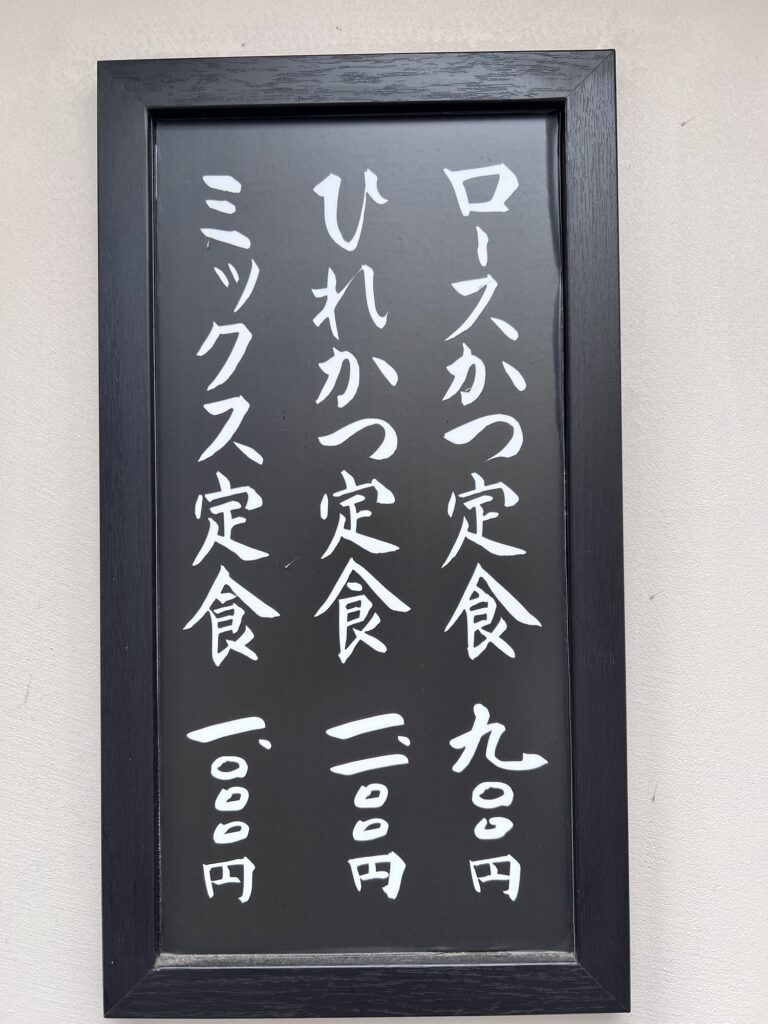 ロースかつ定食 九〇〇円
ひれかつ定食 一、一〇〇円
ミックス定食 一、〇〇〇円